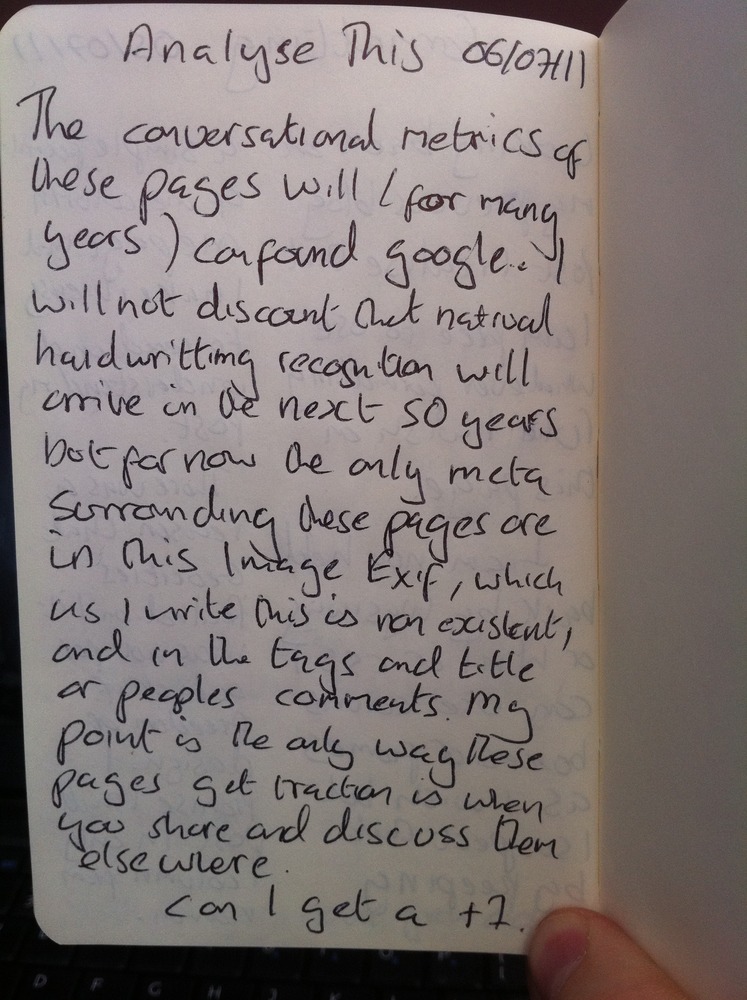 Analyse This 06/07/11
The conversational metrics of
these pages will (for many
years) confound google. I
will not discount that natrual
handwritting recognition will
arrive in the next 50 years
but for now the only meta
surronding these pages are
in this Image Exif, which
as I write this is non existent,
and in the tags and title
or peoples comments. My
point is the only way these
pages get traction is when
you share and discuss them
elsewhere.
Can I get a +1.
D F G H J K L